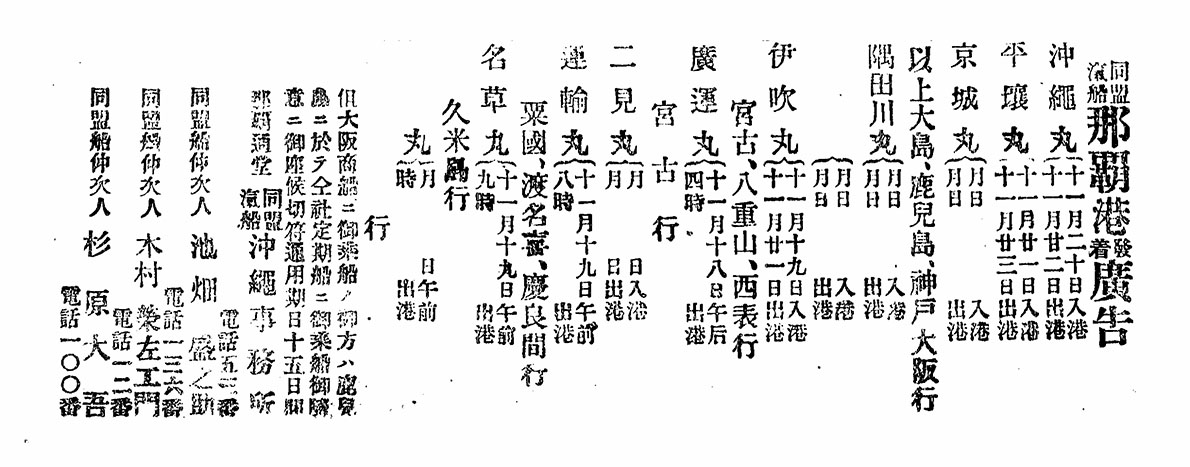 同盟汽船那覇港發着廣告
沖繩丸 十一月二十日入港 十一月廿二日出港
平壤丸 十一月廿一日入港 十一月廿三日出港
京城丸 月日入港 月日出港
隅田川丸 月日入港 月日出港
以上大島、鹿兒島、神戸大阪行
月日入港 月日出港
伊吹丸 十一月十九日入港 十一月廿一日出港
宮古、八重山、西表行
廣運丸 十一月十八日午后四時出港
宮古行
二見丸 月日入港 月日出港
運輸丸 十一月十九日午前八時出港
粟國、渡名喜、慶良間行
名草丸 十一月十九日午前九時出港
久米島行
丸 月日午前時出港
行
但大阪商船ニ御乘船ノ御方ハ鹿兒
島ニ於テ仝社定期船ニ御乘船御隨
意ニ御座候切符通用期日十五日間
那覇通堂 同盟汽船沖繩事務所
電話五三番
同盟船仲次人 池畑盛之助
電話一三六番
同盟船仲次人 木村榮左工門
電話一二番
同盟船仲次人 杉原大吾
電話一〇〇番